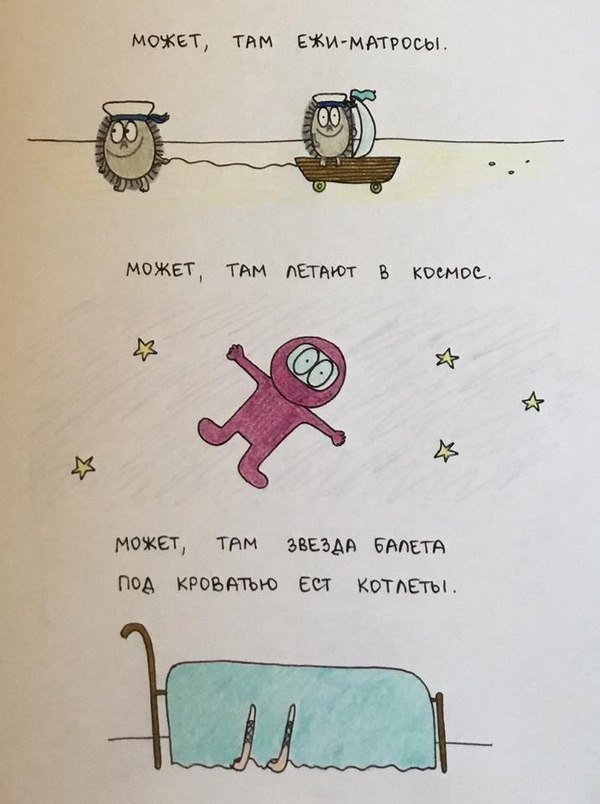 МОЖЕТ, ТАМ ЕЖИ-МАТРОСЫ.
МОЖЕТ, ТАМ ЛЕТАЮТ В КОСМОС.
МОЖЕТ, ТАМ ЗВЕЗДА БАЛЕТА
ПОД КРОВАТЬЮ ЕСТ КОТЛЕТЫ.